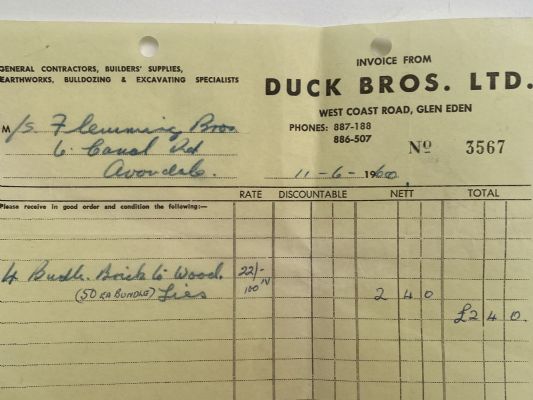 GENERAL CONTRACTORS, BUILDERS' SUPPLIES,
EARTHWORKS, BULLDOZING & EXCAVATING SPECIALISTS
INVOICE FROM
DUCK BROS. LTD.
WEST COAST ROAD, GLEN EDEN
PHONES: 887-188
886-507
No 3567
M/s. Flemming Bros
6 Canal Rd
Avondale.
11-6-1960
RATE DISCOUNTABLE NETT TOTAL
Please receive in good order and condition the following:—
4 Bundls. Brick to Wood 22/-
(50 EA BUNDLE) Ties 100 2 4 0
£2 4 0.